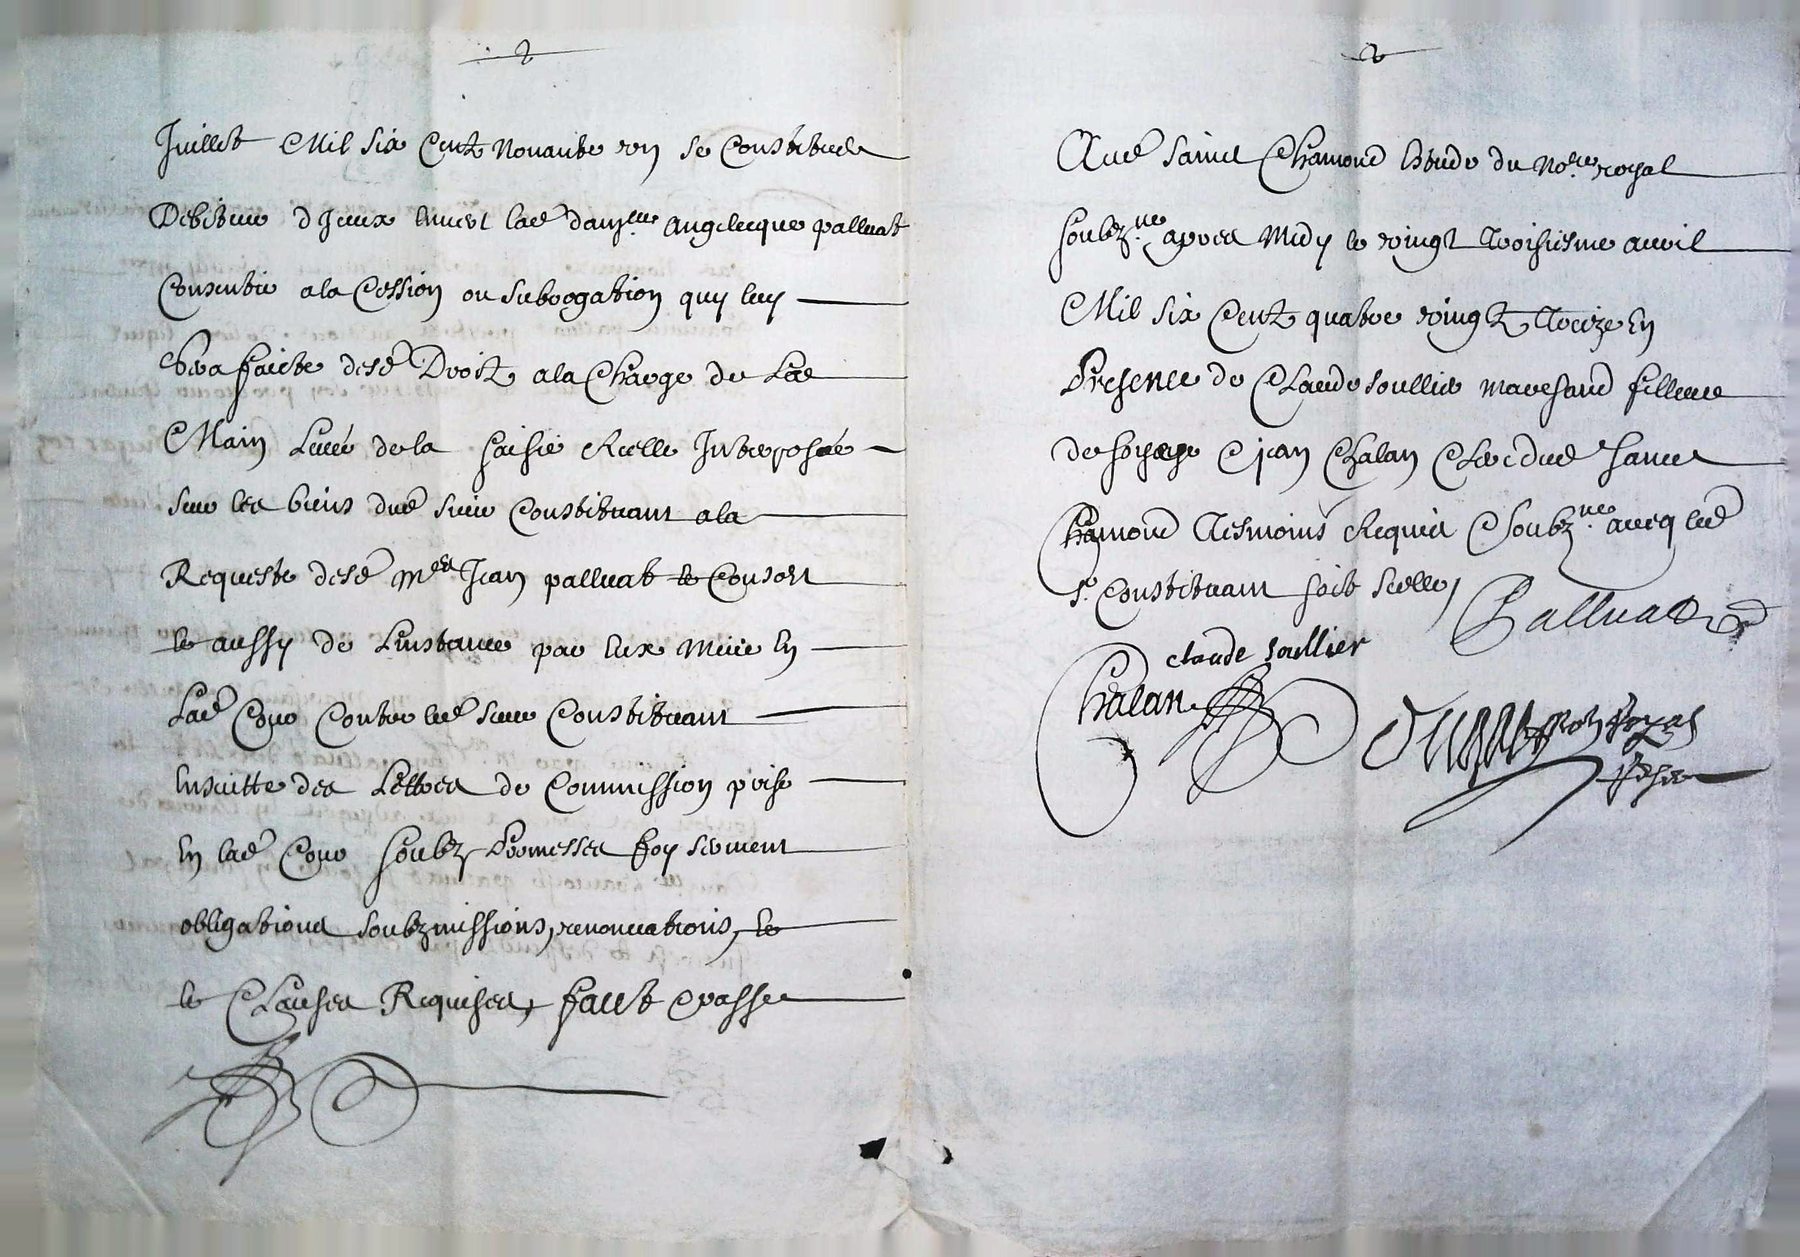 2
Juillet Mil six Cent Nonante un se Constitue
Debiteur d Jceux Envers lad damlle Angelicque palluat
Consentir a la Cession ou subrogation quy luy
sera faicte desd Droitz a la Charge de Lad
Main Levée de la saisie Reelle Interposée
sur les biens dud sieur Constituant a la
Requeste desd Mes Jean palluat Consort
et aussy de Linstance par Eux Meue En
Lad Cour Contre led sieur Constituant
Ensuitte des Lettres de Commission prise
En lad Cour soubz Promesses foy serment
obligations soubzmissions, renonciations, et
et Clauses Requises, faict & passe
2
Aud sainct Chamond Estude du Nore royal
soubzne apres Midy le vingt troisiesme avril
Mil six Cent quatre vingtz treize En
Presence de Claude soullier marchand filleur
de soye & jean Chalan Clerc dud sainct
Chamond tesmoins Requis & soubzne avecq led
sr Constituant soit scellé,
Palluat
claude soullier
Chalan
not Royal